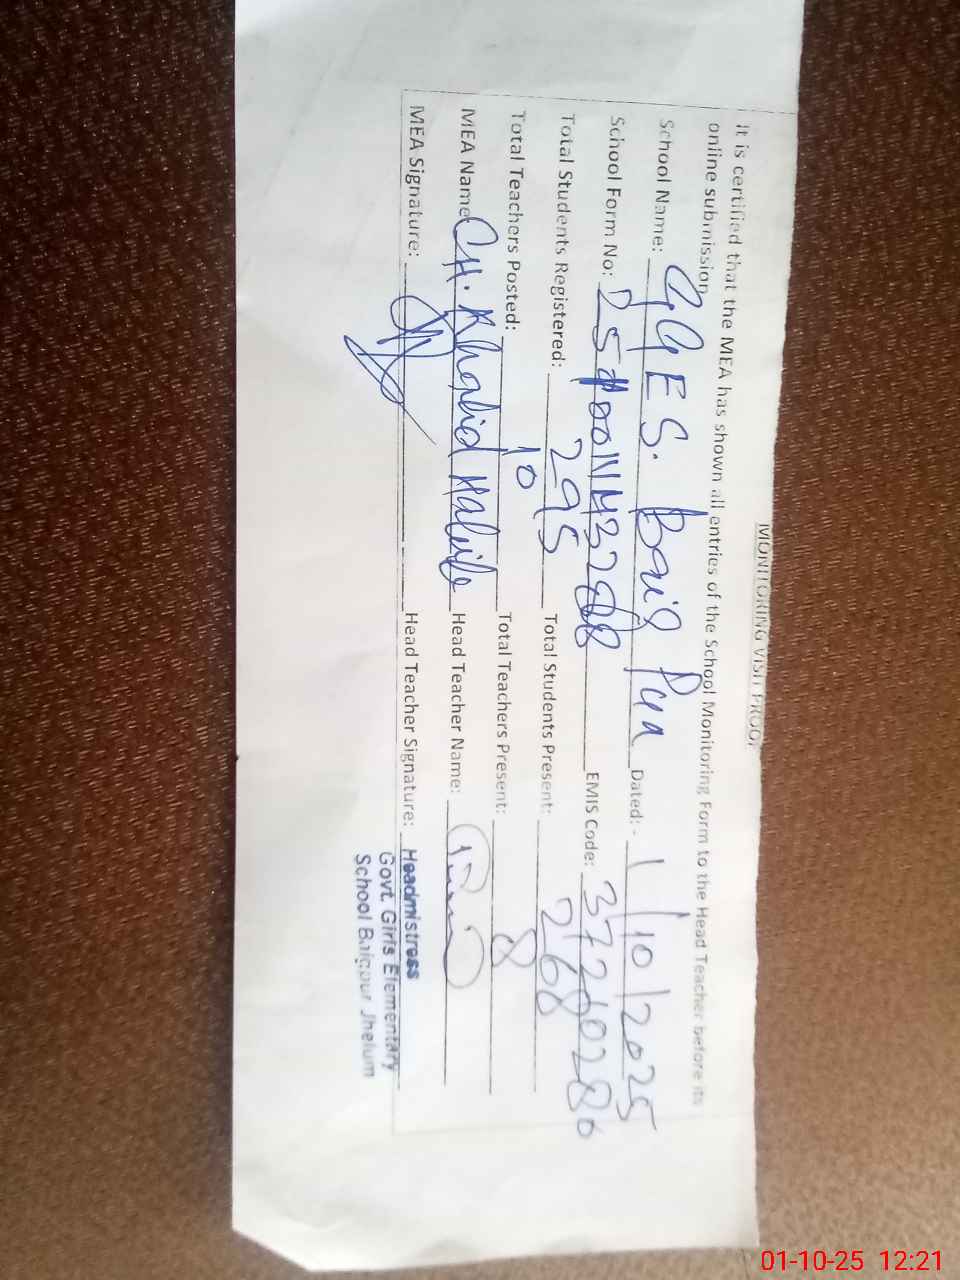 MONITORING VISIT PROOF
It is certified that the MEA has shown all entries of the School Monitoring Form to the Head Teacher before its
online submission
School Name: GGES. Dated: - 1/10/2025
School Form No: EMIS Code: 37240280
Total Students Registered: 295 Total Students Present: 268
Total Teachers Posted: 10 Total Teachers Present: 8
MEA Name CH. Khalid Head Teacher Name:
MEA Signature: Head Teacher Signature: Headmistress
Govt. Girls Elementary
School Baigpur Jhelum
01-10-25 12:21